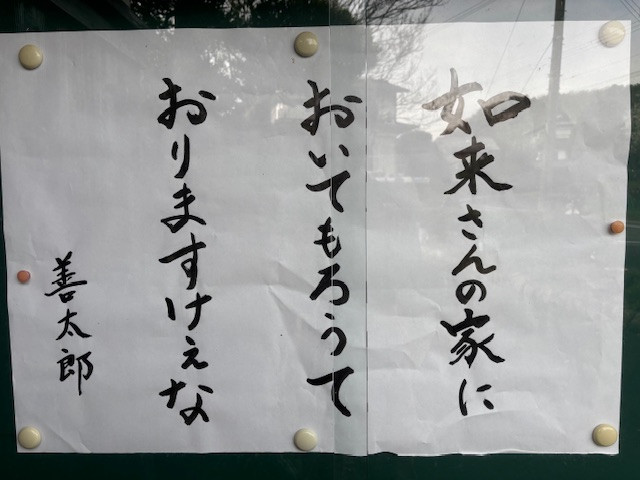 如来さんの家に
おいてもろうて
おりますけぇな
善太郎